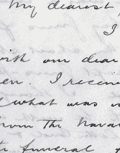 My dearest
I
with our dear
en. I receiv
what was
from the Nava
funeral